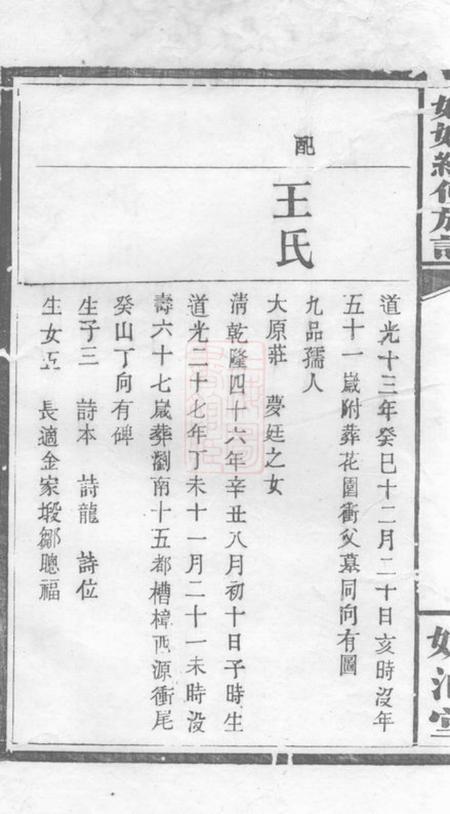 配
王氏
道光十三年癸巳十二月二十日亥時沒年
五十一歲附葬花園衝父墓同向有圖
九品孺人
大原莊 夢廷之女
淸乾隆四十六年辛丑八月初十日子時生
道光二十七年丁未十一月二十一未時沒
壽六十七歲葬瀏南十五都槽樟西源衝尾
癸山丁向有碑
生子三 詩本 詩龍 詩位
生女五 長適金家塅鄒聰福